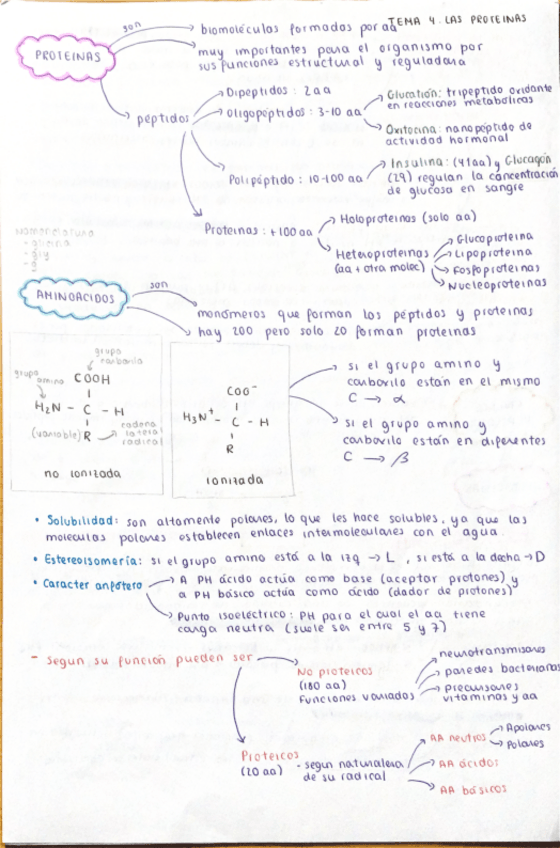 TEMA 4. LAS PROTEINAS
PROTEINAS
son
biomoléculas formadas por aa
muy importantes para el organismo por
sus funciones estructural y reguladora
péptidos
Dipéptidos: 2aa
Oligopéptidos: 3-10 aa
Glucatión: tripéptido oxidante
en reacciones metabólicas
Oxitocina: nanopéptido de
actividad hormonal
Polipéptido: 10-100 aa
Insulina: (41aa) y Glucagón
(29) regulan la concentración
de glucosa en sangre
Proteinas: +100 aa
Holoproteinas (solo aa)
Heteroproteinas
(aa + otra molec)
Glucoproteina
Lipoproteina
Fosfoproteinas
Nucleoproteinas
Nomenclatura
- glicina
- gly
- g
AMINOACIDOS
son
monómeros que forman los péptidos y proteinas
hay 200 pero solo 20 forman proteinas
grupo
carboxilo
grupo
amino
COOH
H2N - C - H
(variable) R
cadena
lateral
radical
no ionizada
COO-
H3N+ - C - H
R
ionizada
si el grupo amino y
carboxilo están en el mismo
C → α
si el grupo amino y
carboxilo están en diferentes
C → β
• Solubilidad: son altamente polares, lo que les hace solubles, ya que las
moleculas polares establecen enlaces intermoleculares con el agua.
• Estereoisomería: si el grupo amino está a la izq → L, si está a la decha → D
• Caracter anfótero
A PH ácido actúa como base (aceptar protones) y
a PH básico actúa como ácido (dador de protones)
Punto isoeléctrico: PH para el cual el aa tiene
carga neutra (suele ser entre 5 y 7)
- Segun su función pueden ser
No proteicos
(180 aa)
Funciones variados
neurotransmisores
paredes bacterianas
precursores
vitaminas y aa
Proteicos
(20 aa)
- segun naturaleza
de su radical
AA neutros
Apolares
Polares
AA ácidos
AA básicos